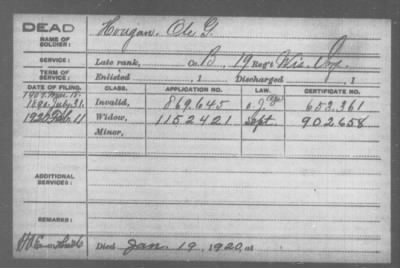 DEAD
NAME OF SOLDIER: Hougan, Ole G.
SERVICE: Late rank, Co. B, 19 Reg't Wis. Inf.
TERM OF SERVICE: Enlisted , 1 Discharged , 1
DATE OF FILING. CLASS. APPLICATION NO. LAW. CERTIFICATE NO.
1890 July 31. Invalid, 869.645 653.361
1920 Feb 11 Widow, 1152421 Sept. 902658
Minor,
ADDITIONAL SERVICES:
REMARKS:
Died Jan 19, 1920, at